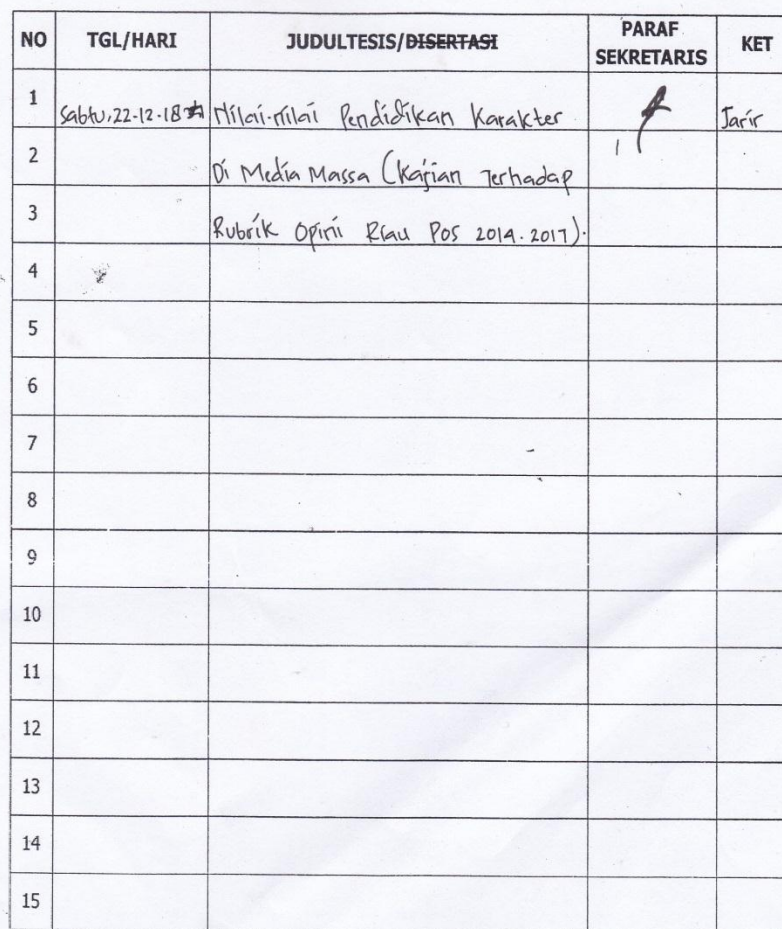 NO TGL/HARI JUDULTESIS/DISERTASI PARAF SEKRETARIS KET
1 Sabtu, 22-12-18 Nilai-nilai Pendidikan Karakter Jarir
2 Di Media Massa (Kajian Terhadap
3 Rubrik Opini Riau Pos 2014-2017).
4
5
6
7
8
9
10
11
12
13
14
15